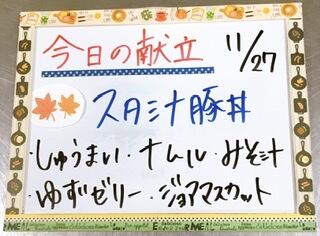 今日の献立 11/27
スタミナ豚丼
・しゅうまい・ナムル・みそ汁
・ゆずゼリー・ジョアマスカット